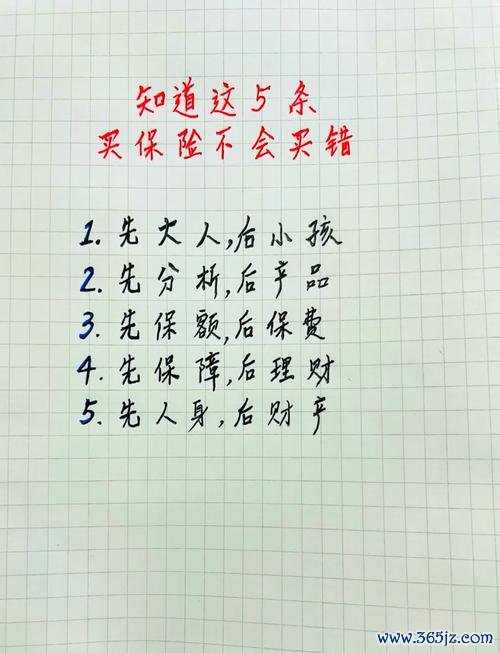 知道这5条
买保险不会买错
1. 先大人,后小孩
2. 先分析,后产品
3. 先保额,后保费
4. 先保障,后理财
5. 先人身,后财产
www.365jz.com